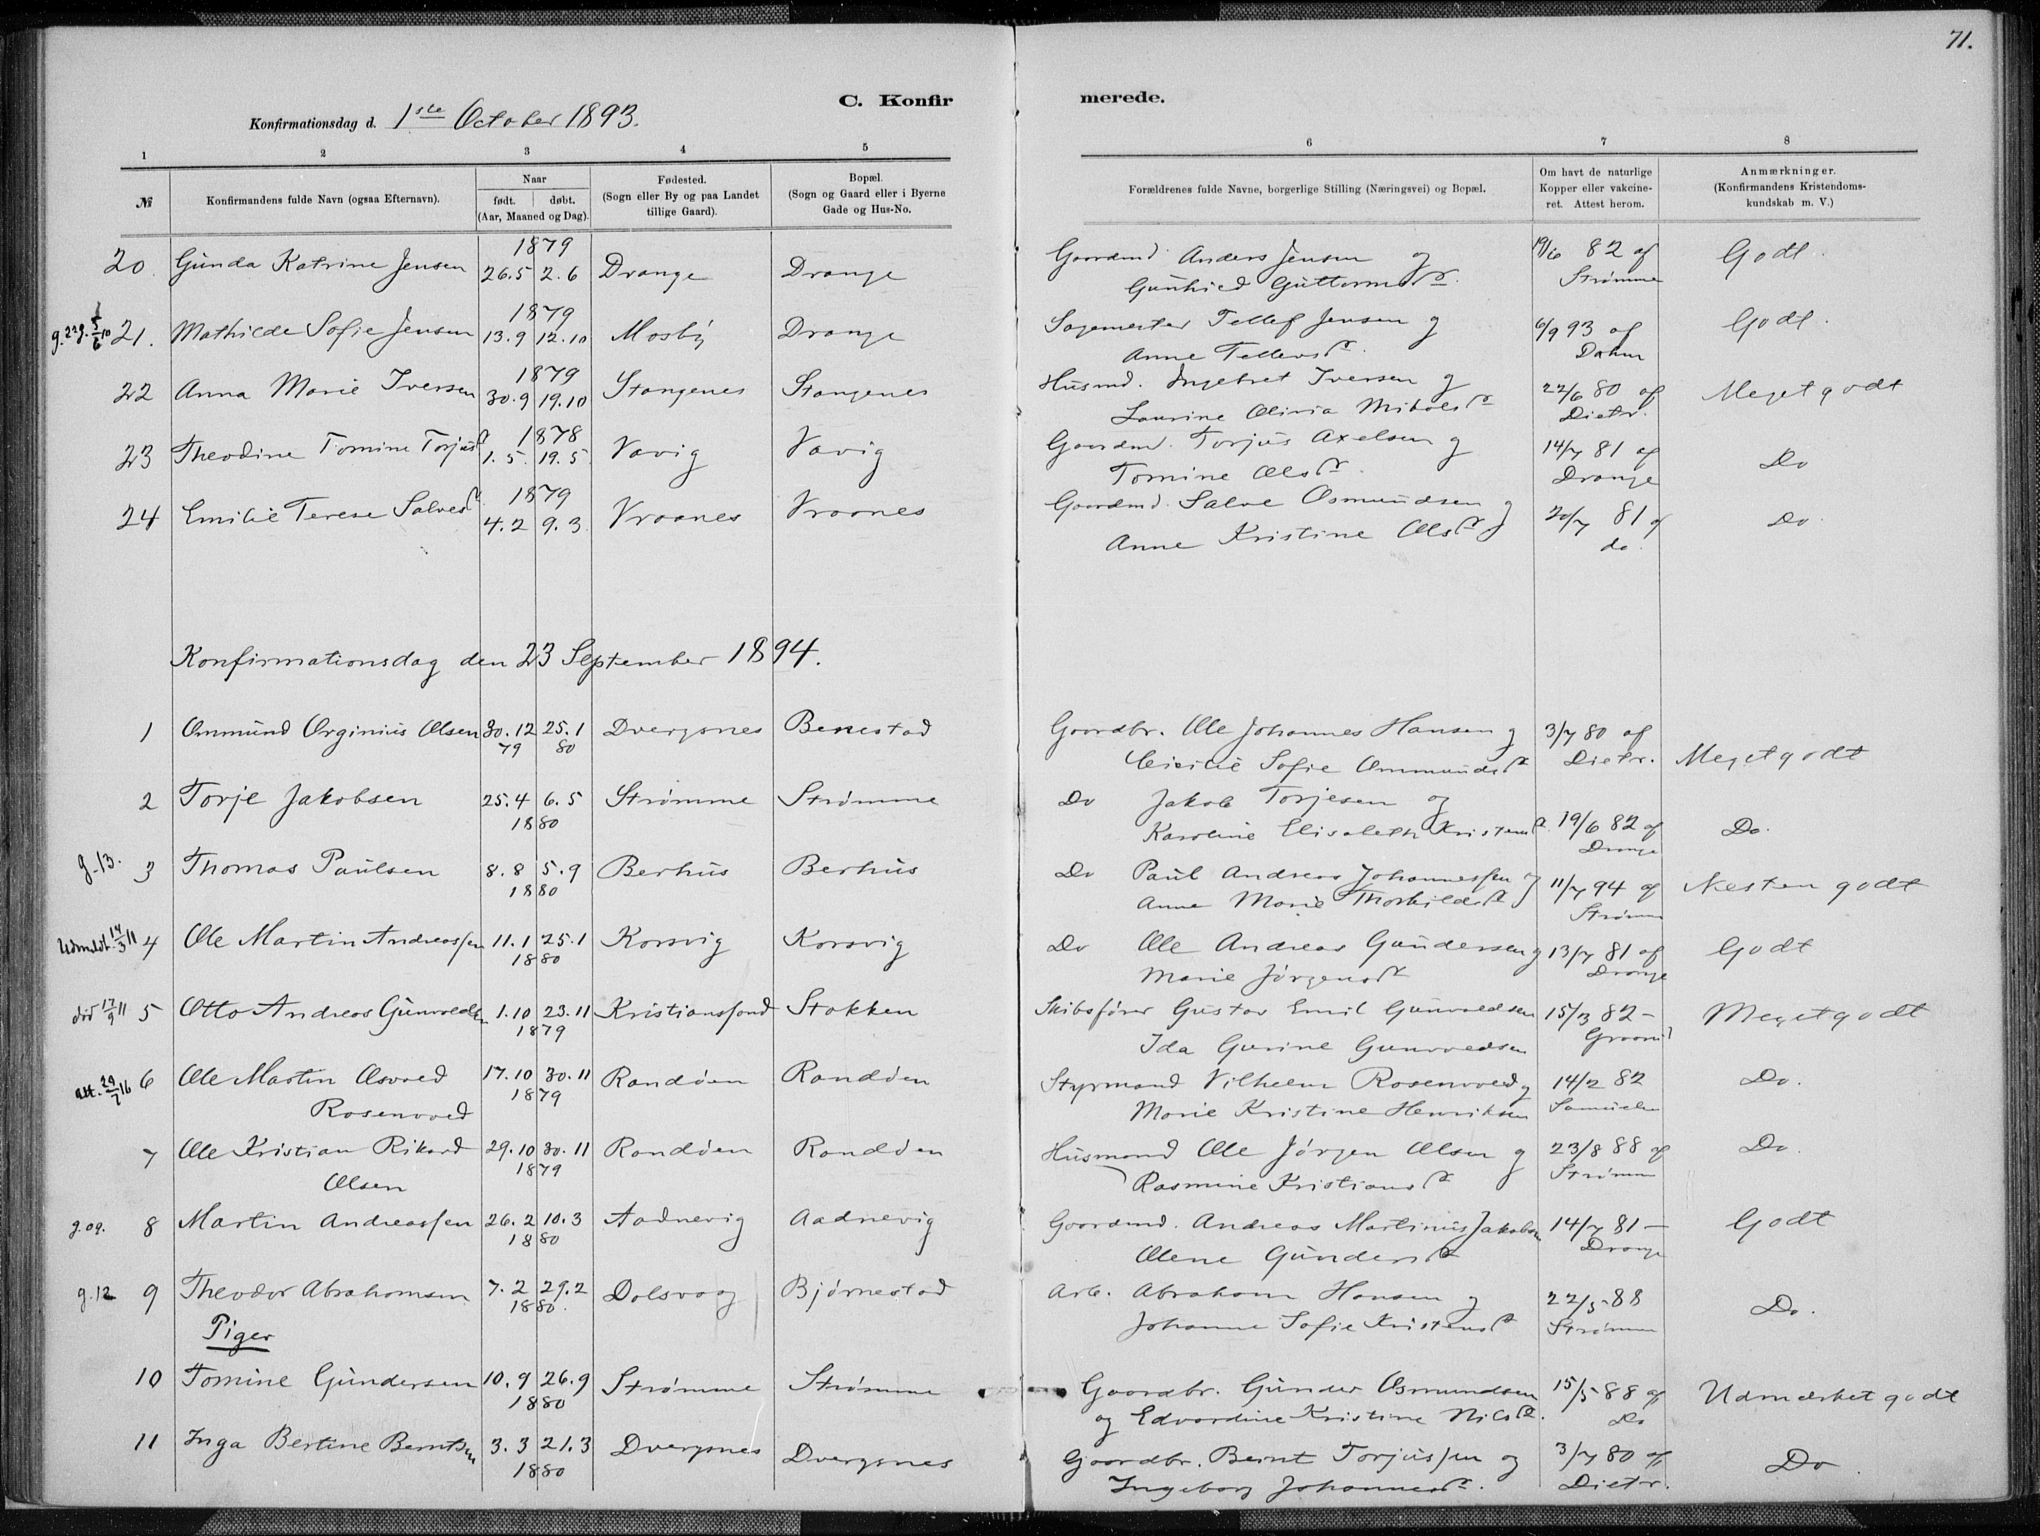 71.
C. Konfir merede.
Konfirmationsdag d. 1ste October 1893.
1 2 3 4 5 6 7 8
№ Konfirmandens fulde Navn (ogsaa Efternavn). Naar født. døbt. (Aar, Maaned og Dag). Fødested. (Sogn eller By og paa Landet tillige Gaard). Bopæl. (Sogn og Gaard eller i Byerne Gade og Hus-No. Forældrenes fulde Navne, borgerlige Stilling (Næringsvei) og Bopæl. Om havt de naturlige Kopper eller vakcineret. Attest herom. Anmærkninger. (Konfirmandens Kristendomskundskab m. V.)
1879
20. Gunda Katrine Jensen 26.5 2.6 Drange Drange Gaardmd Anders Jensen og 19/6 82 af Godt.
Gunhild Guttormsd. Strømme
1879
21. Mathilde Sofie Jensen 13.9 12.10 Mosby Drange Sagmester Tellef Jensen og 6/9 93 af Godt.
Anne Tellevsd.
1879
22 Anna Marie Iversen 30.9 19.10 Stangenes Stangenes Husmd. Ingebret Iversen og 22/6 80 af Meget godt
Laurine Olivia Dietr.
1878
23 Theodine Tomine Torjusd 1.5. 19.5. Vavig Vavig Gaardmd. Torjus Axelsen og 14/7 81 af Do
Tomine Olsd. Drange
1879
24 Emilie Terese Salvesd 4.2 9.3. Vraanes Vraanes Gaardmd. Salve Osmundsen og 20/7 81 af Do.
Anne Kristine Olsd do.
Konfirmationsdag den 23 September 1894.
1 Ommund Orginius Olsen 30.12 25.1 Dvergsnes Benestad Gaardbr. Ole Johannes Hansen og 3/7 80 af Meget godt
79 80 Cicilie Sofie Ommundsd Dietr.
2 Torje Jakobsen 25.4 6.5 Strømme Strømme Do Jakob Torjesen og 19/6 82 af Do.
1880 Karoline Elisabeth Kristensd. Drange
g.13. 3 Thomas Paulsen 8.8 5.9 Berhus Berhus Do Paul Andreas Johannessen og 11/7 94 af Nesten godt
1880 Anne Marie Thorkildsd Strømm
Udmeldt. 14/3 11 4 Ole Martin Andreassen 11.1 25.1 Korsvig Korsvig Do Ole Andreas Gundersen og 13/7 81 af Godt
1880 Marie Jørgensd Drange
17/9 11 5 Otto Andreas Gunvaldsen 1.10 23.11 Kristianssand Stokken Skibsfører Gustav Emil Gunvaldsen 15/3 82 – Meget godt
1879 Ida Gurine Gunvaldsen
att. 29/7 16 6 Ole Martin Osvald 17.10 30.11 Randøen Randøen Styrmand Vilhelm Rosenvold og 14/2 82 Do.
Rosenvold 1879 Marie Kristine Henriksen
7 Ole Kristian Rikard 29.10 30.11 Randøen Randøen Husmand Ole Jørgen Olsen og 23/8 88 af Do.
Olsen 1879 Rasmine Kristiansd Strømm
g.09. 8 Martin Andreassen 26.2 10.3 Aadnevig Aadnevig Gaardmd. Andreas Martinius Jakobsen 14/7 81 – Godt
1880 Olene Gundersd Drange
g.12 9 Theodor Abrahamsen 7.2 29.2 Dolsvaag Bjørnestad Arb. Abraham Hansen og 22/5 88 Do.
1880. Johanne Sofie Kristensd Strømm
Piger
10 Tomine Gundersen 10.9 26.9 Strømme Strømme Gaardbr. Gunder Osmundsen 15/5 88 af Udmærket godt
1880 og Edvardine Kristine Nilsd. Do
11 Inga Bertine Berntsen 3.3 21.3 Dvergsnes Dvergsnes Gaardbr. Bernt Torjussen og 3/7 80 af Do.
1880 Ingeborg Johannesd. Dietr.